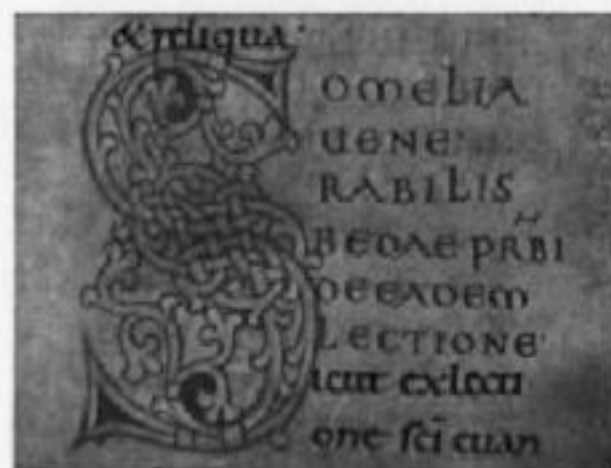 & reliqua·
OMELIA
UENE·
RABILIS
BEDAE PRBI
DEEADEM
LECTIONE·
S icut exlecti
one sci euan